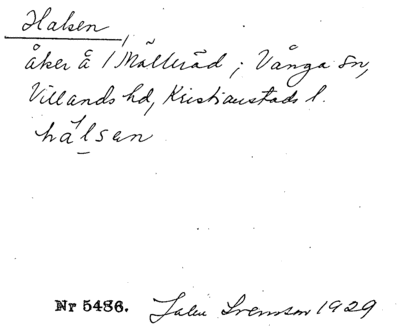 Halsen
åker å 1 Mölleröd ; Vånga sn,
Villands hd, Kristianstads l.
hálsen
Nr 5486. John Svensson 1929